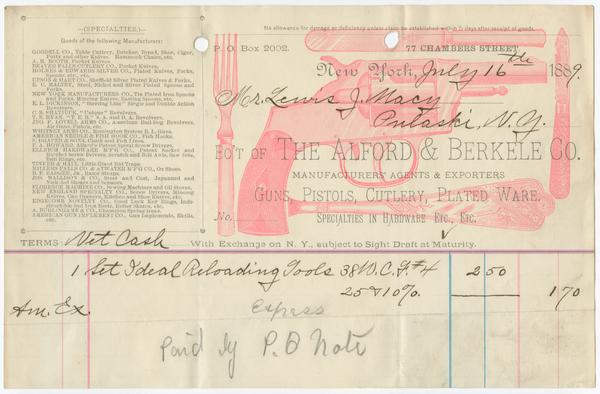 —(SPECIALTIES.)—
Goods of the following Manufacturers:
GOODELL CO., Table Cutlery, Butcher, Bread, Shoe, Cigar,
Putty and other Knives. Hammock Chairs, etc.
A. M. BOOTH, Pocket Knives.
BEAVER FALLS CUTLERY CO., Pocket Knives.
HOLMES & EDWARDS SILVER CO., Plated Knives, Forks,
Spoons, etc., etc.
UPSON & HART CO., Sheffield Silver Plated Knives & Forks.
Steel, Nickel and Silver Plated Spoons and
Forks.
NEW YORK MANUFACTURING CO., Tin Plated Iron Spoons
and Forks, Mixing Knives, Basting Spoons, etc.
E. L. DICKINSON, "Sterling Line" Single and Double Action
Revolvers.
C. S. SHATTUCK, "Unique" Revolvers.
T. E. RYAN, S. A. and D. A. Revolvers.
JNO. P. LOVELL ARMS CO., American Bull Dog Revolvers,
Air Guns, Pistols, etc.
WHITNEY ARMS CO., Remington System B. L. Guns.
AMERICAN NEEDLE & FISH HOOK CO., Fish Hooks.
F. A. HOWARD, Allard's Patent Spiral Screw Drivers.
ELLRICH HARDWARE M'F'G CO., Patent Socket and
Ratchet Screw Drivers, Scratch and Belt Awls, Saw Sets,
Bull Rings, etc.
TINKER & HALL, Little Giant Bat Traps.
JOS. WALLISON & CO., Steel and Cast, Japanned and
Nickeled Shears and Scissors.
FLORENCE MACHINE CO., Sewing Machines and Oil Stoves.
NEW ENGLAND SPECIALTY CO., Screw Drivers, Mincing
Knives, Can Openers, Kitchen and Shoe Knives, etc.
A. BURLINGAME & CO., Champion Spring Guns.
AMERICAN GUN IMPLEMENT CO., Gun Implements, Shells,
etc.
No allowance for damage or deficiency unless claim be established within 5 days after receipt of goods.
P. O. Box 2002. 77 CHAMBERS STREET,
New York, July 16th 1889.
Mr. Lewis J. Macy
Pulaski, N.Y.
BO'T OF THE ALFORD & BERKELE CO.
MANUFACTURERS' AGENTS & EXPORTERS
GUNS, PISTOLS, CUTLERY, PLATED WARE.
No. SPECIALTIES IN HARDWARE ETC., ETC.
TERMS Net Cash With Exchange on N. Y., subject to Sight Draft at Maturity.
1 Set Ideal Reloading Tools 38 W.C.F. #4 2 50
25 & 10%. 1 70
Am. Ex. Express
Paid by P.O Note